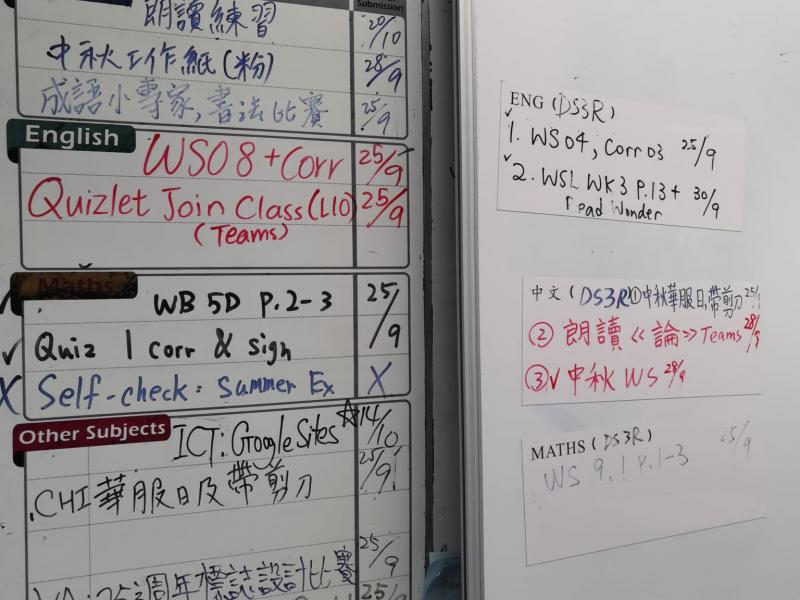 Submission
朗讀練習 20/10
中秋工作紙(粉) 28/9
成語小專家,書法比賽 25/9
English
WS08+Corr 25/9
Quizlet Join Class(L10) 25/9
(Teams)
Maths
WB 5D P.2-3 25/9
✓ Quiz 1 corr & sign
X Self-check: Summer Ex X
Other Subjects
ICT: Google Sites ☆14/10
.CHI華服日及帶剪刀 25/9!
VA:25週年標誌設計比賽 25/9
25
ENG (DS3R)
✓ 1. WS04, Corr03 25/9
✓ 2. WSL WK3 P.13+ 30/9
Read Wonder
中文 (DS3R) ①中秋華服日,帶剪刀 25/9
② 朗讀《論》Teams 28/9
③✓中秋 WS 28/9
MATHS (DS3R) 25/9
WS 9.1 P.1-3